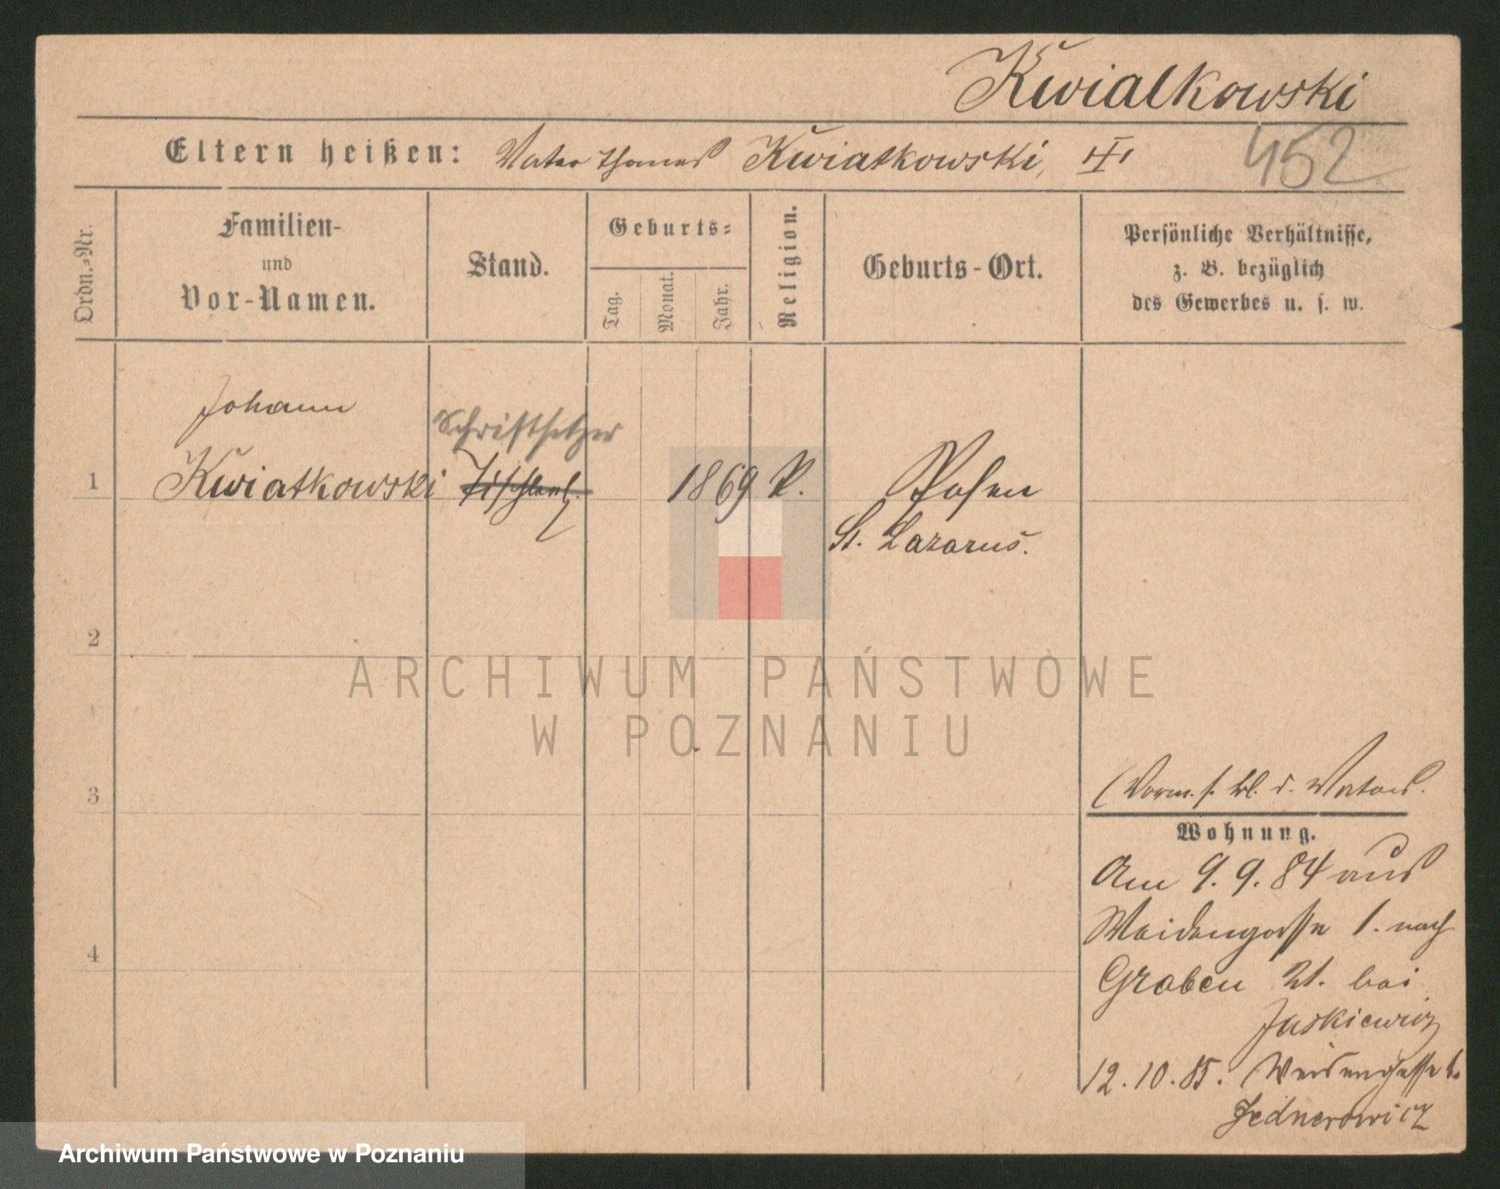 Kwiatkowski
Eltern heißen: Vater Thomas Kwiatkowski,
452
Ordn.-Nr.
Familien-
und
Vor-Namen.
Stand.
Geburts-
Tag.
Monat.
Jahr.
Religion.
Geburts-Ort.
Persönliche Verhältnisse,
z. B. bezüglich
des Gewerbes u. s. w.
Johann
Schriftsetzer
1 Kwiatkowski 1869 Posen
St. Lazarus.
2
ARCHIWUM PAŃSTWOWE
W POZNANIU
3
Wohnung.
Am 9. 9. 84 aus
Weidengasse 1. nach
Graben 21. bei
Jaskiewicz
12. 10. 85. Weidengasse
Jednerowicz
4
Archiwum Państwowe w Poznaniu